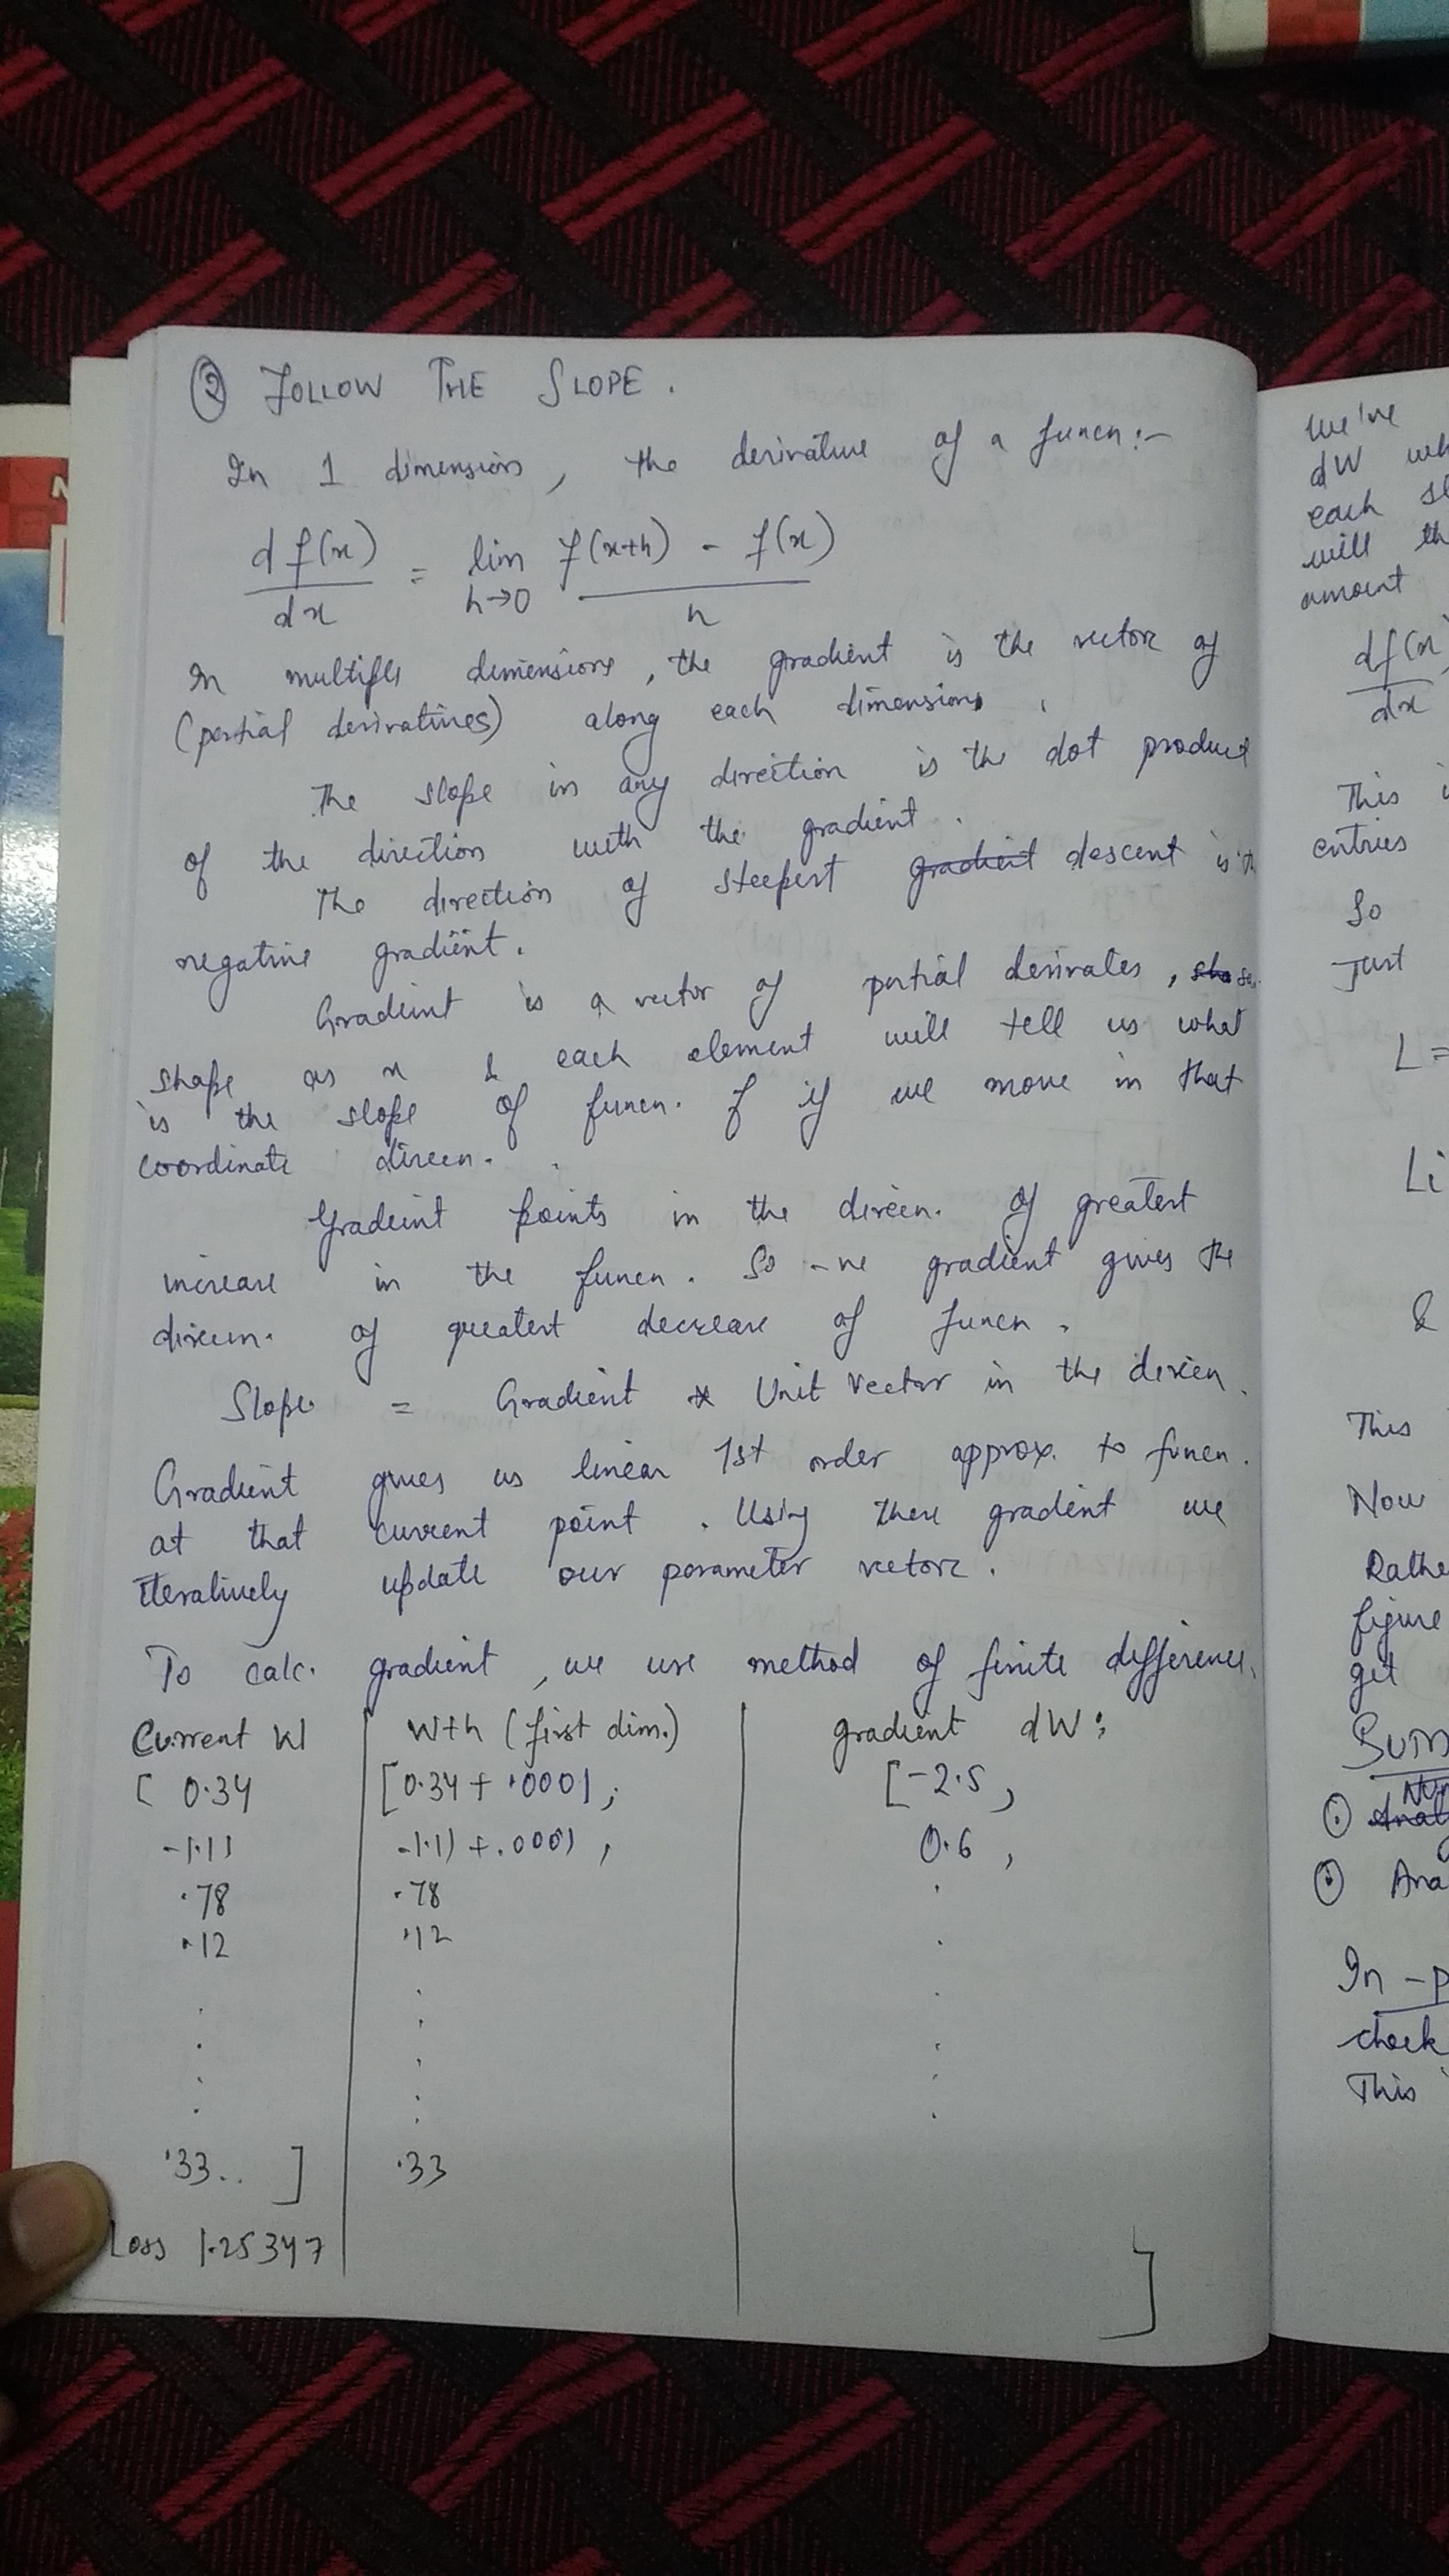 ② FOLLOW THE SLOPE.
In 1 dimension, the derivative of a funcn :-
df(x)/dx = lim h→0 f(x+h) - f(x) / h
In multiple dimensions, the gradient is the vector of
(partial derivatives) along each dimensions.
The slope in any direction is the dot product
of the direction with the gradient.
The direction of steepest gradient descent is
negative gradient.
Gradient is a vector of partial derivates,
shape as x & each element will tell us what
is the slope of funcn. f if we move in that
coordinate direcn.
Gradient points in the direcn. of greatest
increase in the funcn. So -ve gradient gives the
direcn. of greatest decrease of funcn.
Slope = Gradient * Unit Vector in the direcn.
Gradient gives us linear 1st order approx. to funcn.
at that current point. Using these gradient we
iteratively update our parameter vector.
To calc. gradient, we use method of finite difference.
Current W | W+h (first dim.) | gradient dW:
[ 0.34 | [0.34 + .0001, | [-2.5,
-1.11 | -1.11 + .0001, | 0.6,
.78 | .78 | .
.12 | .12 | .
.33.. ] | .33 | ]
Loss 1.25347
We've
dW
each
will
amount
df(x)/dx
This
entries
So
Just
L =
Li
&
This
Now
figure
get
①
② 
In
check
This